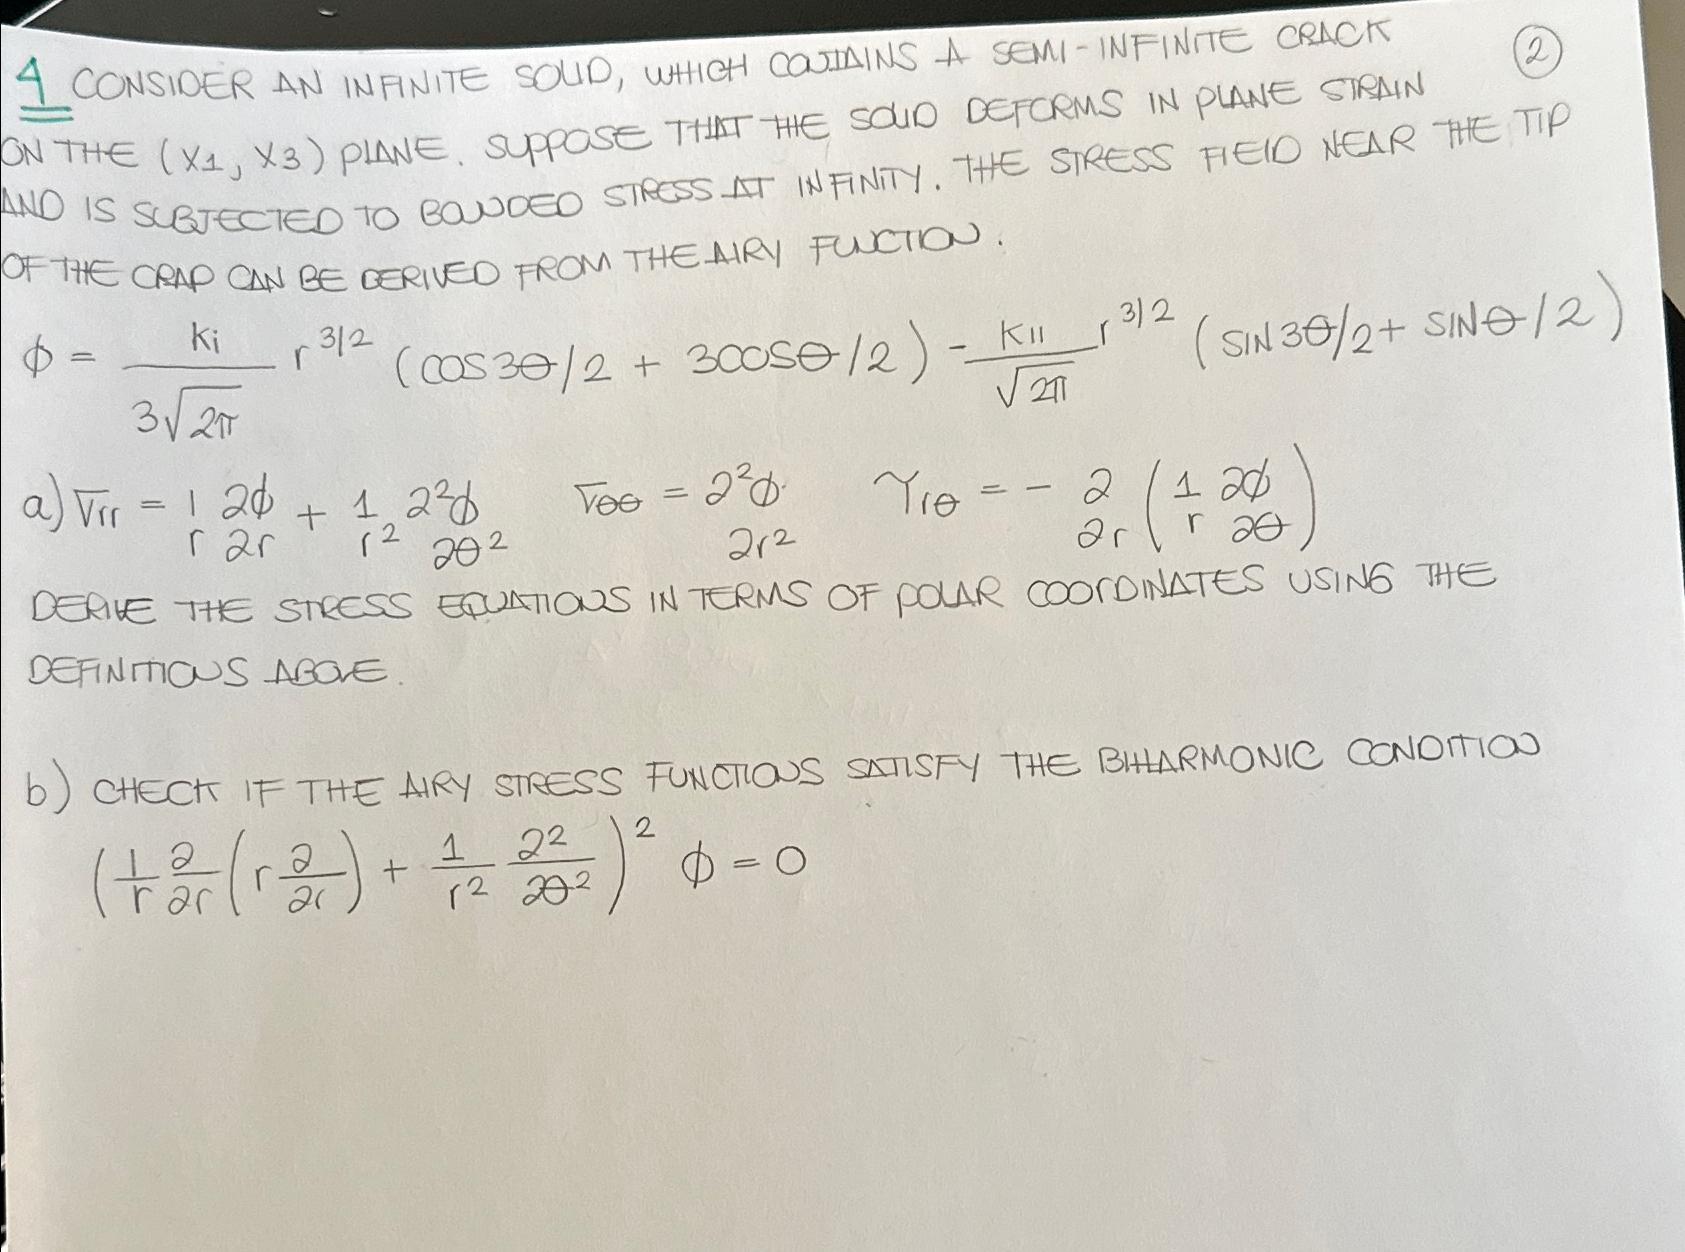 4 CONSIDER AN INFINITE SOLID, WHICH CONTAINS A SEMI-INFINITE CRACK ②
ON THE (X1, X3) PLANE. SUPPOSE THAT THE SOLID DEFORMS IN PLANE STRAIN
AND IS SUBJECTED TO BOUNDED STRESS AT INFINITY. THE STRESS FIELD NEAR THE TIP
OF THE CRAP CAN BE DERIVED FROM THE AIRY FUNCTION.
ϕ = Ki / 3√2π r^3/2 (COS3θ/2 + 3COSθ/2) - KII / √2π r^3/2 (SIN3θ/2 + SINθ/2)
a) σrr = 1/r ∂ϕ/∂r + 1/r² ∂²ϕ/∂θ² σθθ = ∂²ϕ/∂r² τrθ = - ∂/∂r (1/r ∂ϕ/∂θ)
DERIVE THE STRESS EQUATIONS IN TERMS OF POLAR COORDINATES USING THE
DEFINITIONS ABOVE.
b) CHECK IF THE AIRY STRESS FUNCTIONS SATISFY THE BIHARMONIC CONDITION
(1/r ∂/∂r (r ∂/∂r) + 1/r² ∂²/∂θ²)² ϕ = 0